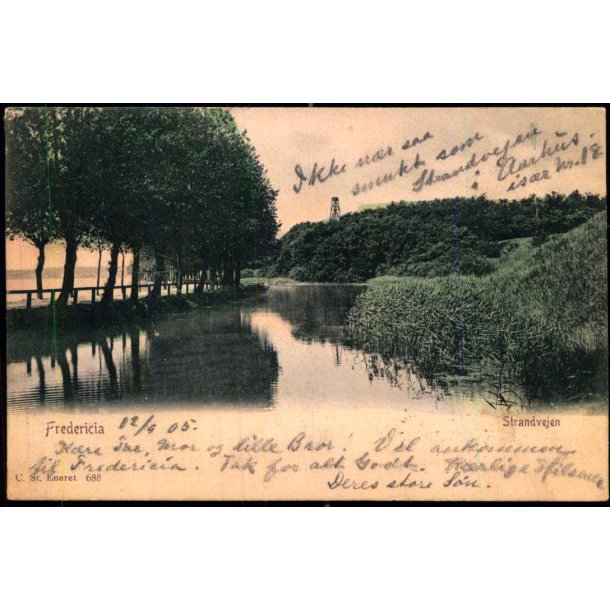 Ikke nær saa
smukt som
Strandvejen
i Aarhus.
især Nr. 18
Fredericia 12/9 05. Strandvejen
Kære Far, Mor og lille Bror! Vel ankommen
til Fredericia. Tak for alt Godt. Kærlige Hilsener
C. St. Eneret 688 Deres store Søn.